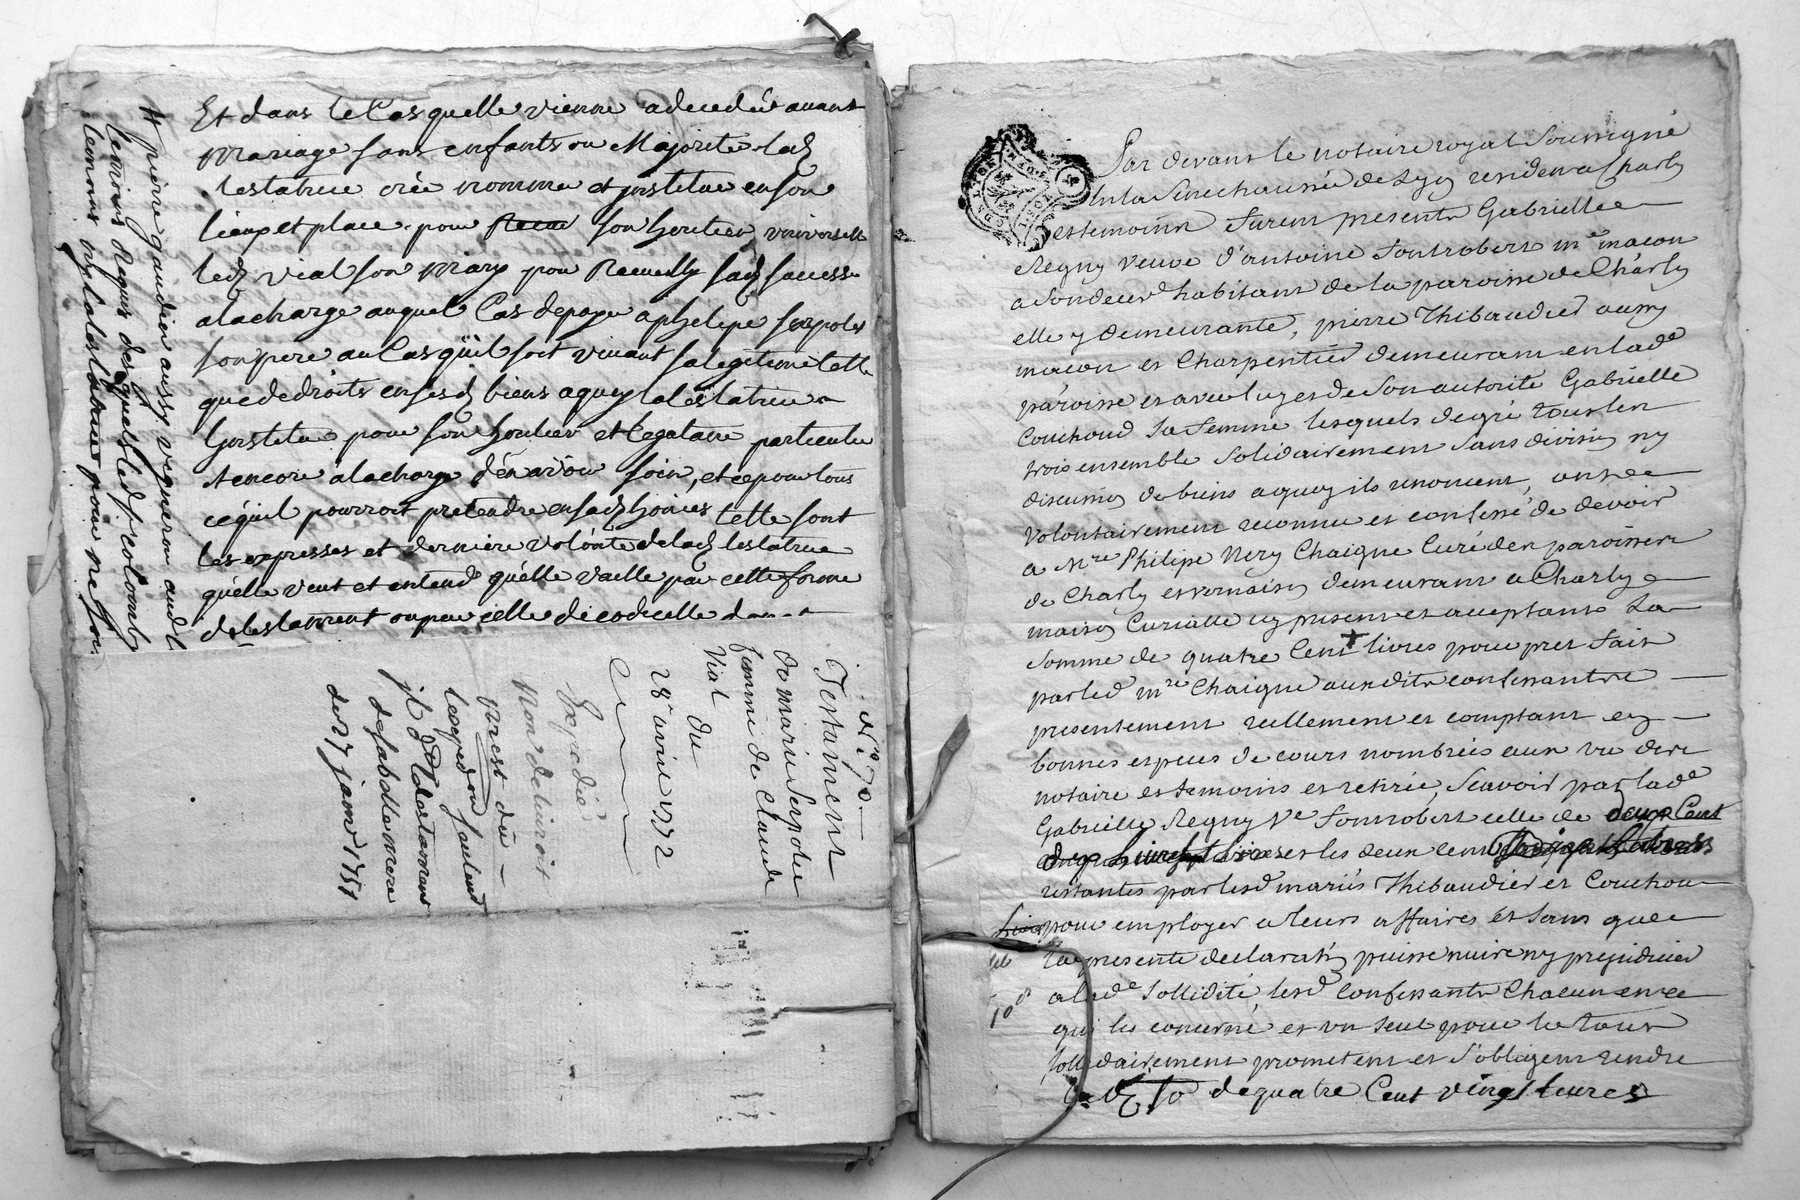 Et dans le Cas quelle vienne a decedér avant
mariage sans enfants ou Majorite lad
testatrice crée nomme et jnstitue en son
lieux et place pour son heritier universelle
led vial son mary pour Recueillir sad success
alacharge auquel Cas depayer a phelipe serpolet
son pere au Cas quil soit vivant sa legitime telle
que de droits en sesd biens aquoy la testatrice
jnstitue pour son heritier et legataire particulier
et encore alacharge d'en avoir soin, et ce pour tous
cequil pourroit pretendre ensad hoirie telle sont
les expresses et derniere volonté de lad testatrice
qu'elle veut et entend qu'elle vaille par cette forme
de testament ou par celle de codicelle
pierre gaudin aussy vigneron aud
temoins Requis desquels led s. colomb
temoins ny la testatrice pour ne
N.o 70
Testament
de marie Serpolet
femme de Claude
Vial
du
28 avril 1772
Expedié
Non delivroit
n'est du
lexpedon faulaut
jl d testament
de sabelle mere
de 27 janv 1751
Par devant le notaire royal Soussigné
En la Senechaussée de Lyon resident a Charly
et temoins furent presents Gabrielle
Regny veuve d'antoine fontrobert me macon
a Son deces habitant de la paroisse de Charly
elle y demeurante, pierre Thibaudier aussy
macon et Charpentier demeurant en lade
paroisse et avec luy et de Son autorité Gabrielle
Couchoud Sa femme lesquels de gré tous les
trois ensemble Solidairement Sans division ny
discution de biens a quoy ils renoncent, ont
volontairement reconnu et confessé de devoir
a Mre Philipe Nery Chaigne Curé des paroisses
de Charly et vernaison demeurant a Charly
maison Curialle cy present et acceptant La
Somme de quatre Cent livres pour pret fait
par led mre Chaigne aux dits confessants
presentement reellement et comptant en
bonnes especes de cours nombrée aux vu de
notaire et temoins et retirée, Scavoir par lade
Gabrielle Regny Ve fontrobert celle de deux Cent
livres et les deux cent
restantes par lesd mariés Thibaudier et Couchoud
pour employer a leurs affaires et sans que
la presente declaration puisse nuire ny prejudicier
a lade Sollidité, lesd confessants Chacun en ce
qui les concerne et un Seul pour le tout
sollidairement promettent et S'obligent rendre
lad so de quatre Cent vingt livres